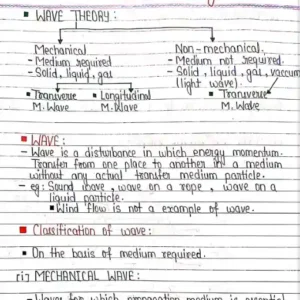 ▪ WAVE THEORY :
Mechanical
- Medium required
- Solid, liquid, gas
▪ Transverse M. Wave
▪ Longitudinal M. Wave
Non-mechanical.
- Medium not required.
- Solid, liquid, gas, vaccum
(light wave).
▪ Transverse
M. Wave
■ WAVE :
- Wave is a disturbance in which energy momentum.
Transfer from one place to another in a medium
without any actual transfer medium particle.
- eg: Sound wave, wave on a rope, wave on a
liquid particle.
▪ Wind flow is not a example of wave.
■ Classification of wave :
▪ On the basis of medium required.
(i) MECHANICAL WAVE :
- Waves for which propagation medium is essential